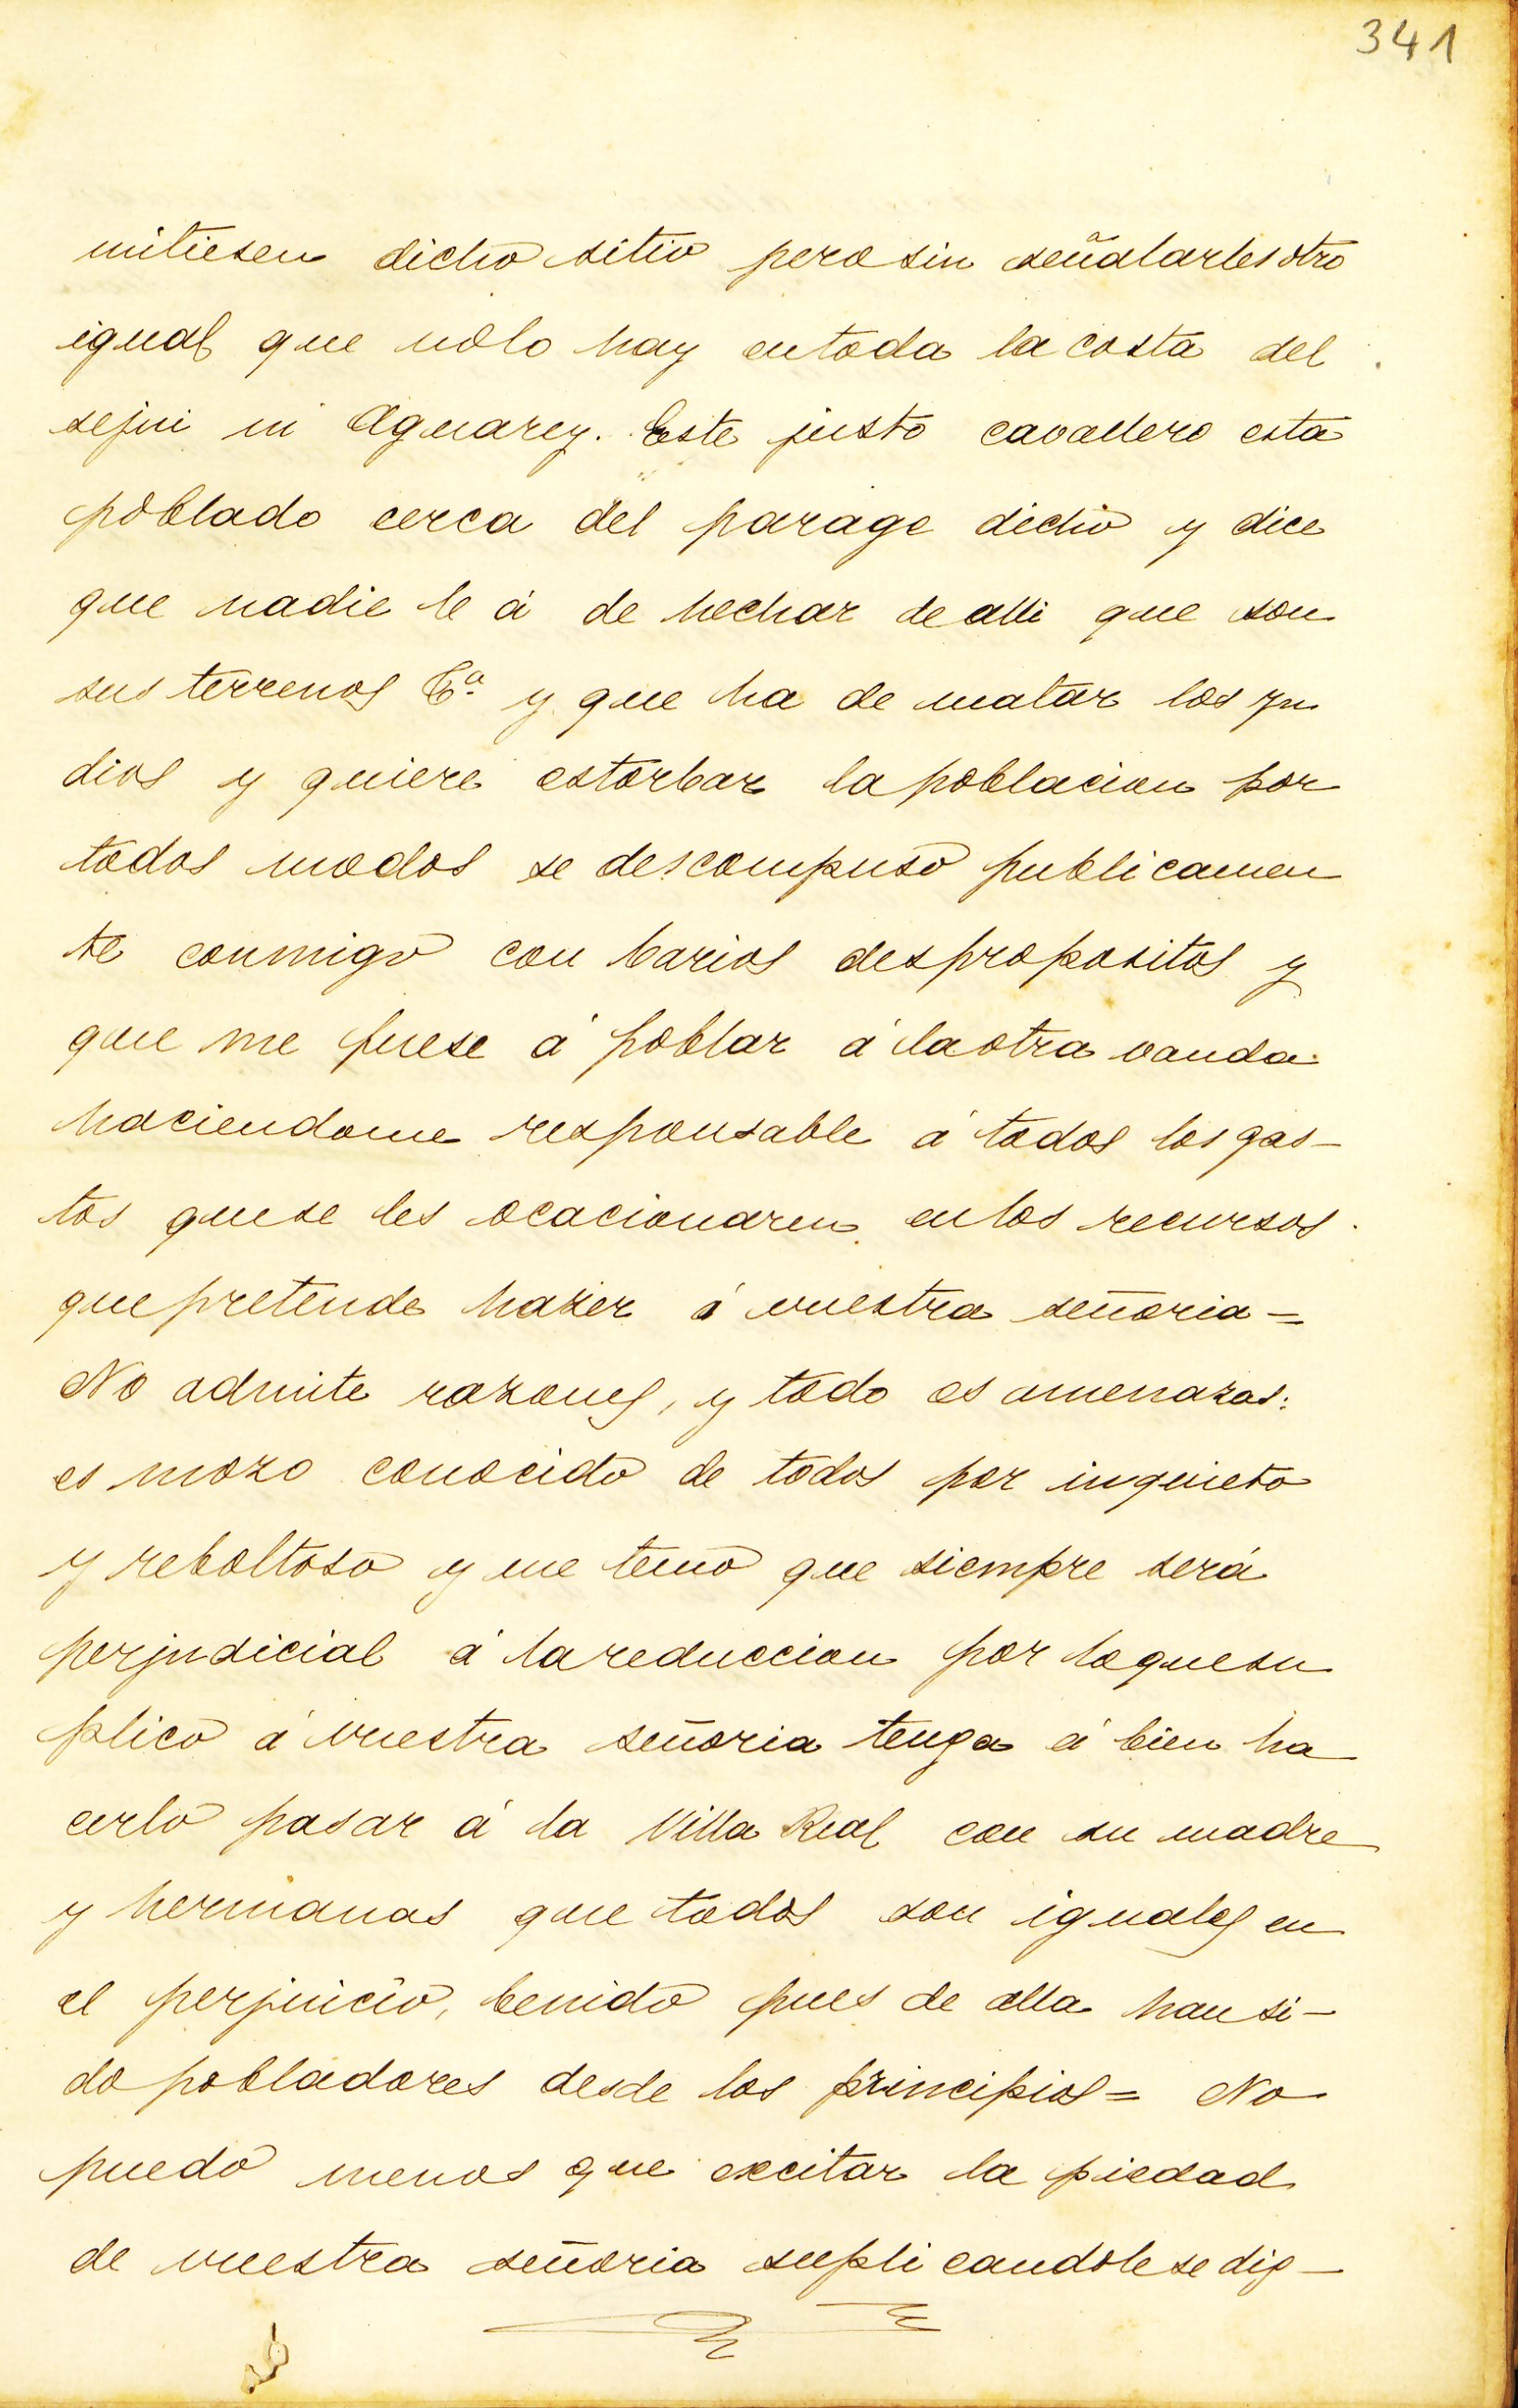 341
mitiesen dicho sitio pero sin señalarles otro
igual que nolo hay entoda la costa del
sejui ni Aguarey. Este justo cavallero esta
poblado cerca del parage dicho y dice
que nadie le á de hechar de alli que son
sus terrenos &ª y que ha de matar los yn
dios y quiere estorbar la poblacion por
todos modos se descompuso publicamen
te conmigo con barios despropositos y
que me fuese á poblar á laotra vanda
haciendome responsable á todos los gas-
tos quese les ocacionaren enlos recursos
que pretende hazer á vuestra señoria =
No admite razones, y todo es amenazas:
es mozo conocido de todos por inquieto
y reboltoso y me temo que siempre será
perjudicial á lareduccion por loquesu
plico á vuestra señoria tenga á bien ha
cerlo pasar á la Villa Real con su madre
y hermanas que todos son iguales en
el perjuicio, benido pues de alla han si-
do pobladores desde los principios = No
puedo menos que excitar la piedad
de vuestra señoria suplicandole se dig-